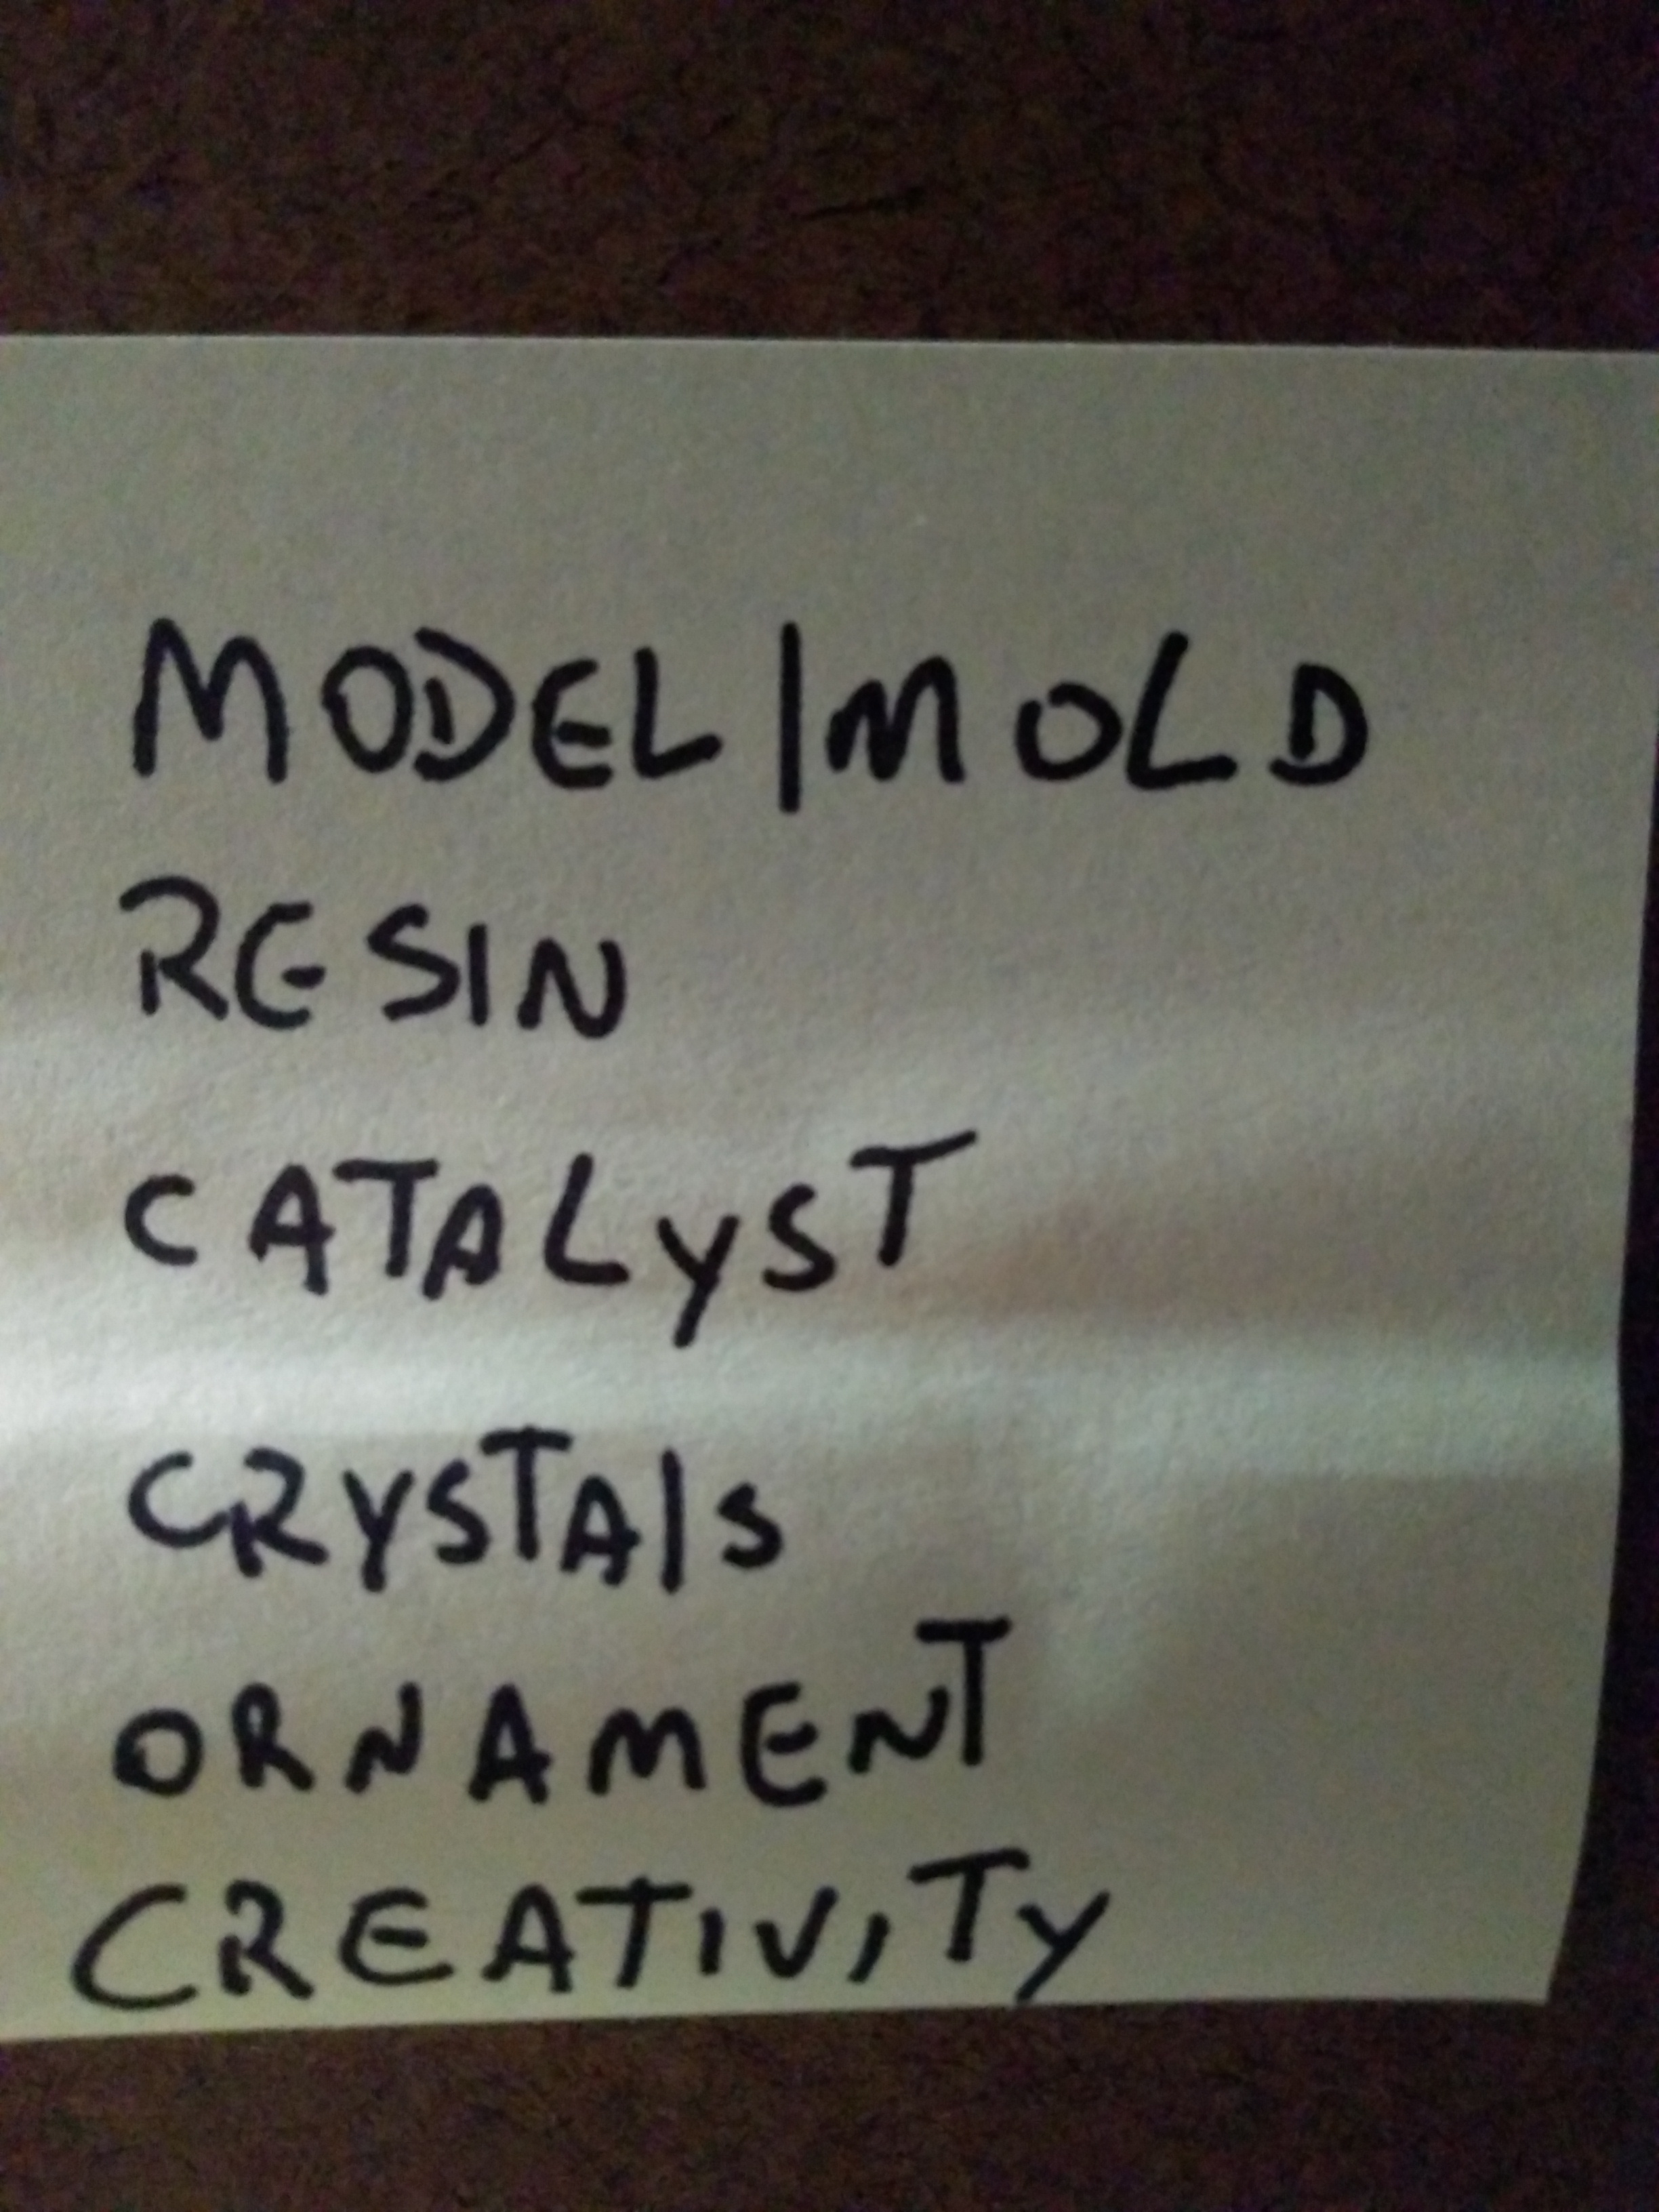 MODEL/MOLD
RESIN
CATALYST
CRYSTALS
ORNAMENT
CREATIVITY